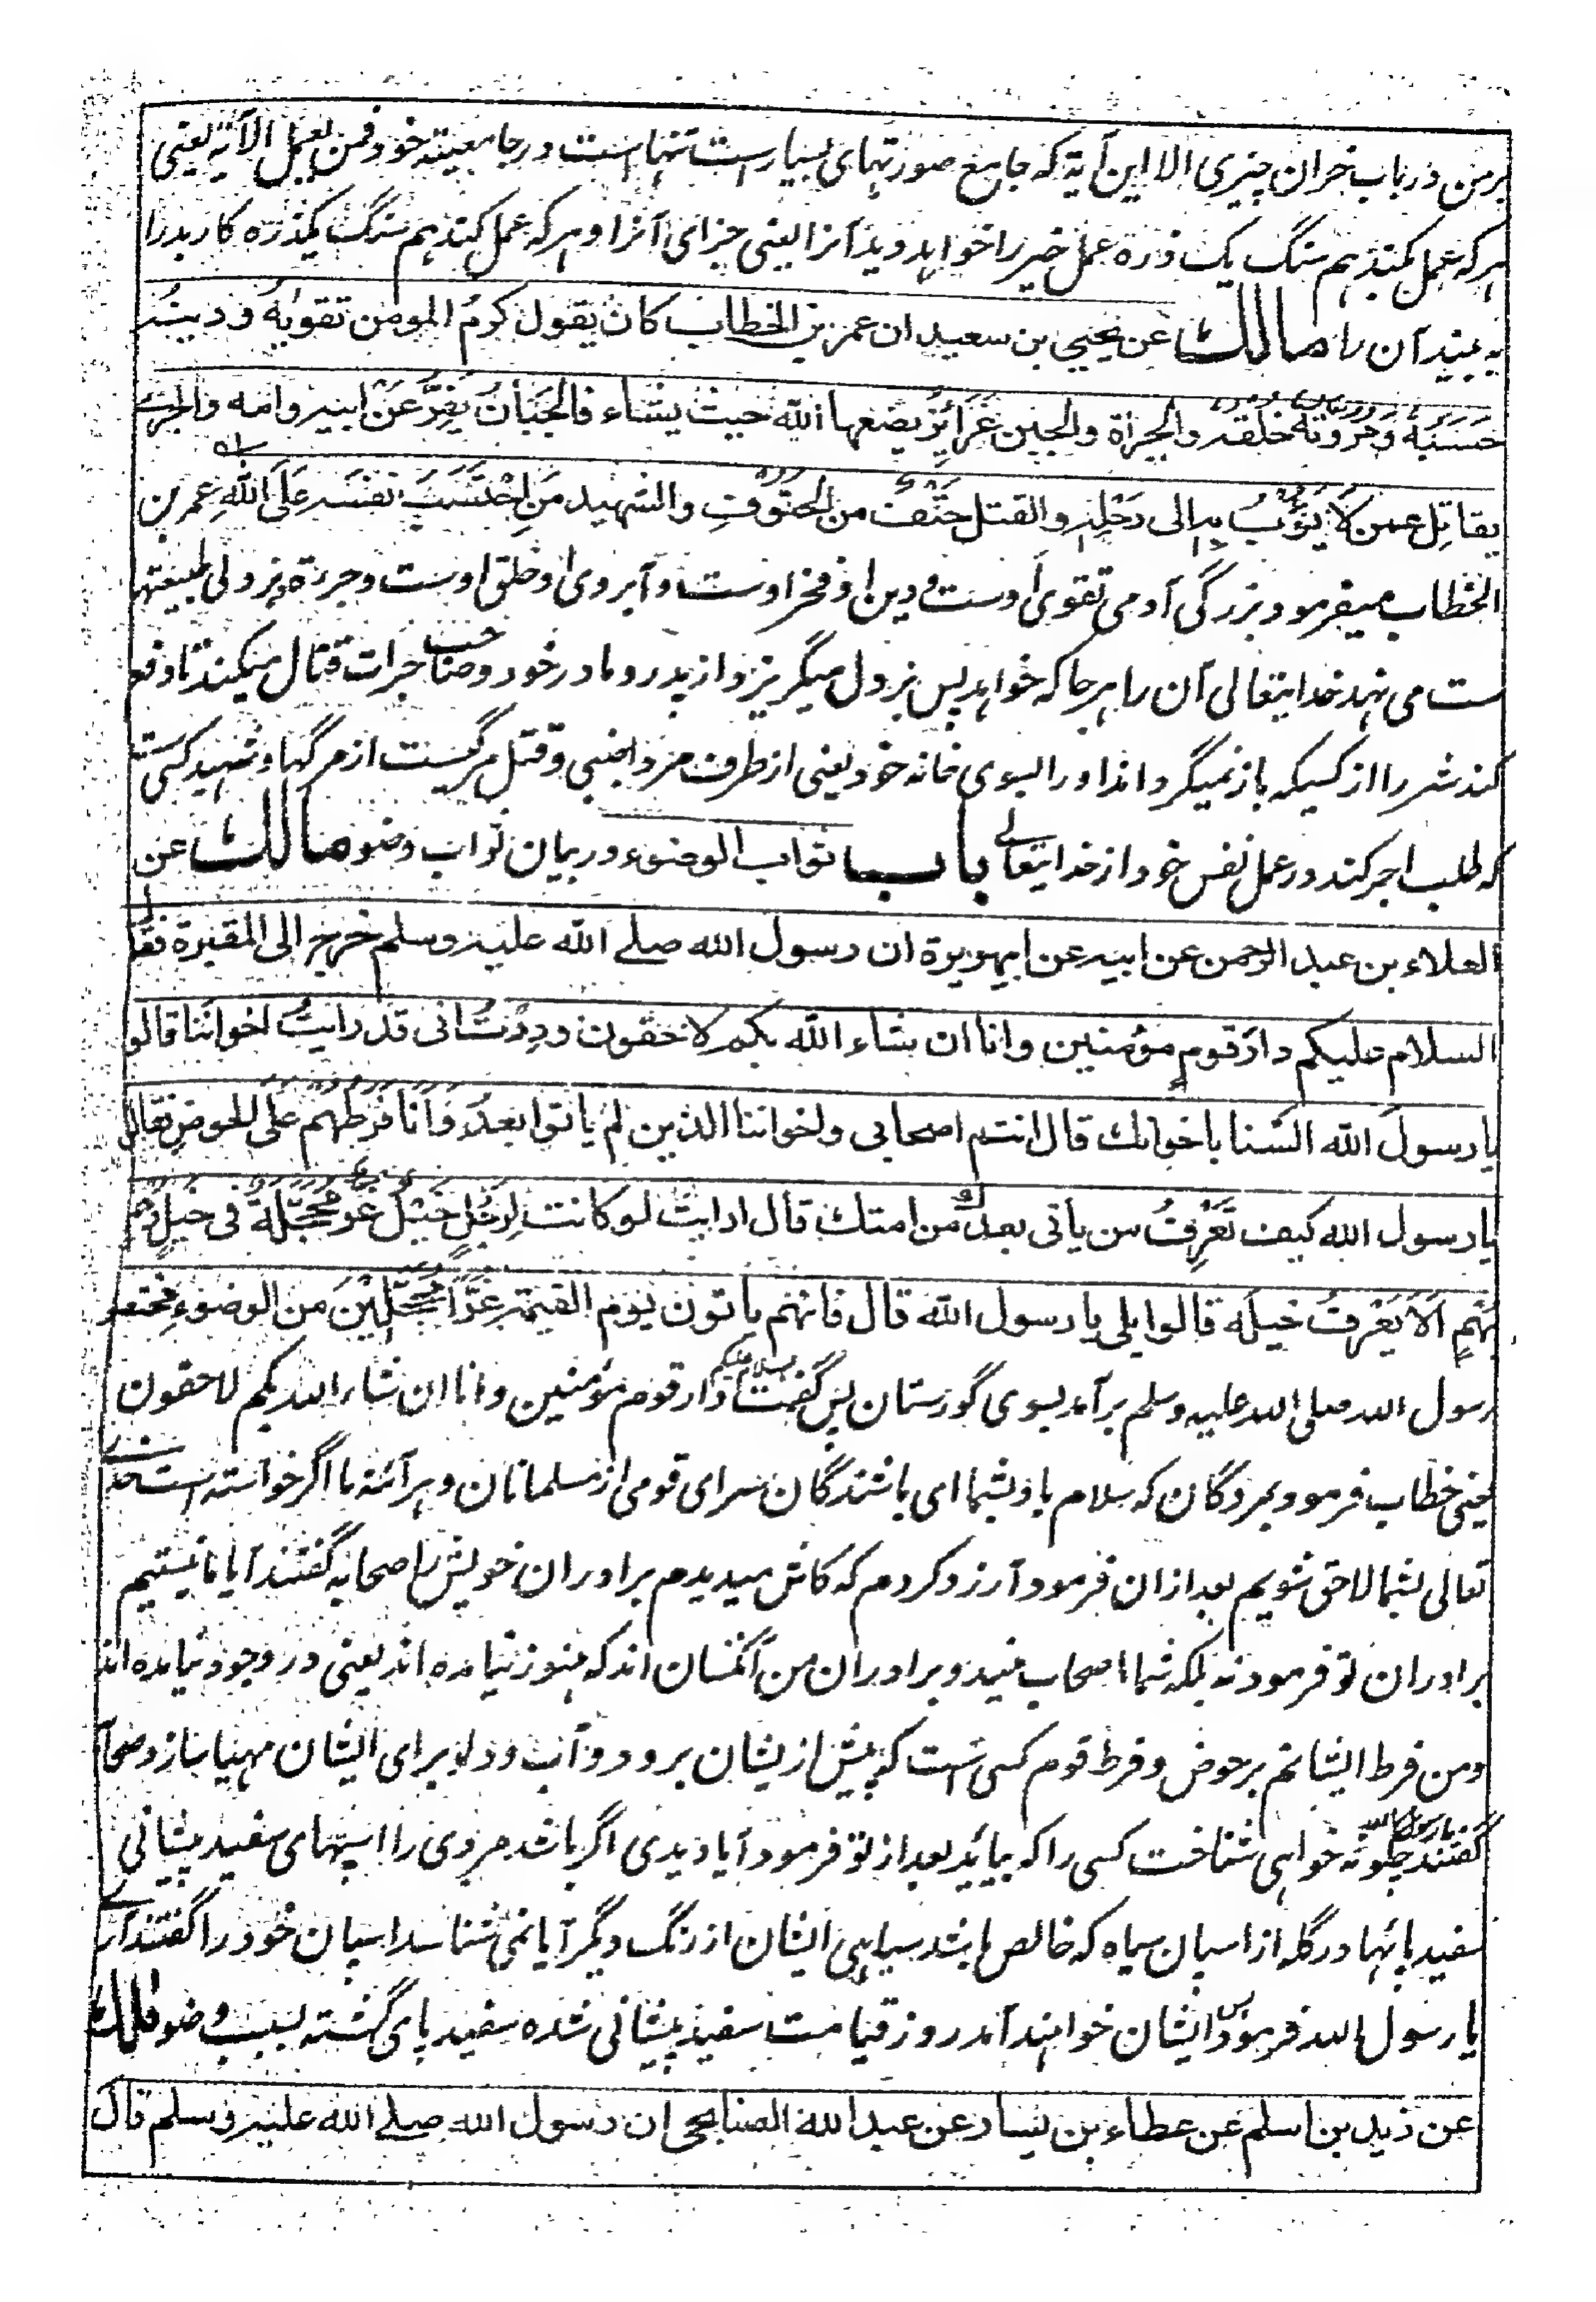 بر من در باب خران چیزی الا این آیة که جامع صورتهای بسیار است تنها است در جامعیته خود فمن یعمل الآیه یعنی
هر که عمل کند هم سنگ یک ذره عمل خیر را خواهد دید آنرا یعنی جزای آنرا و هر که عمل کند هم سنگ یکذره کار بد را
به بیند آن را مالك عن یحیی بن سعید ان عمر بن الخطاب کان یقول کرمُ المومن تقویٰهُ ودینُه
حَسَبُهٗ ومُرُوتُهٗ خلُقُه والجرأة والجبن غَرَائِزُ یضعها الله حیث یشاء فالجَبَانُ یَفِرُّ عَنْ ابیه وامه والجری
یقاتِل عمن لَا یَؤُبُ بِه الی رَحْلِه والقتل حَتْفٌ من الحتُوفِ والشهید مَنِ احْتَسَبَ نفسَه عَلَی اللهِ عمر بن
الخطاب میفرمود بزرگی آدمی تقوی اوست و دین او فخر اوست و آبروی او خلق اوست و جرءة و بزدلی طبیعتها
ست می نهد خدایتعالی آن را هر جا که خواهد پس بزدل میگریزد از پدر و مادر خود و صاحب جرات قتال میکند تا دفع
کند شر را از کسیکه باز نمیگرداند او را بسوی خانه خود یعنی از طرف مرد اجنبی و قتل مرگیست از مرگها و شهید کسی است
که طلب اجر کند در عمل نفس خود از خدایتعالے باب ثواب الوضوء در بیان ثواب وضو مالك عن
العلاء بن عبد الرحمن عن ابیه عن ابیهریرة ان رسول الله صلے الله علیه وسلم خرج الی المقبرة فقال
السلام علیکم دار قومٍ مؤمنین وانا ان شاء الله بکم لاحقون ودِدْتُ انی قد رایتُ اخوانَنا قالو
یا رسولَ الله السْنا باخوانك قال انتم اصحابی واخواننا الذین لم یاتوا بعدُ وَاَنَا فَرَطُهُم عَلَی الحوضِ فقالو
یا رسول الله کیف تَعْرِفُ من یأتی بعدك من امتك قال ارایتَ لو کانت لِرَجُلٍ خَیْلٌ غُرٌ مُحَجَّلَةٌ فی خیلٍ دُهْمٍ
بُهْمٍ اَلَا یَعْرِفُ خیلَه قالوا بلی یا رسول الله قال فانهم یاتون یوم القیمة غُرًّا مُحَجَّلِیْنَ من الوضوءِ
رسول الله صلی الله علیه وسلم برآمد بسوی گورستان پس گفت السلام علیکم دار قوم مؤمنین و انا ان شاء الله بکم لاحقون
یعنی خطاب فرمود بمردگان که سلام باد بشما ای باشندگان سرای قومی از مسلمانان و هر آئنه ما اگر خواسته است خدا
تعالی بشما لاحق شویم بعد ازان فرمود آرزو کردم که کاش میدیدم برادران خویش را صحابه گفتند آیا ما نیستیم
برادران تو فرمود نه بلکه شما اصحاب منید و برادران من آنکسان اند که هنوز نیامده اند یعنی در وجود نیامده اند
و من فرط ایشانم بر حوض و فرط قوم کسی است که پیش از یشان برود و آب و دلو برای ایشان مهیا سازد صحابه
گفتند یا رسول الله چگونه خواهی شناخت کسی را که بیاید بعد از تو فرمود آیا دیدی اگر باشد مردی را اسپهای سفید پیشانی
سفید پایها در گله از اسپان سیاه که خالص باشد سیاهی ایشان از رنگ دیگر آیا نمی شناسد اسپان خود را گفتند آرے
یا رسول الله فرمود پس ایشان خواهند آمد روز قیامت سفید پیشانی شده سفید پای گشته بسبب وضو مالك
عن زید بن اسلم عن عطاء بن یسار عن عبد الله الصنابحی ان رسول الله صلے الله علیه وسلم قال